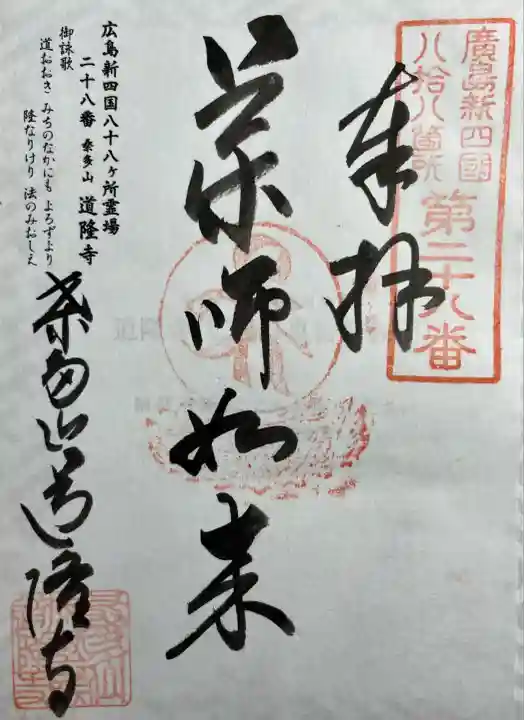 廣島新四國
八拾八箇所
第二十八番
奉拝
薬師如来
広島新四国八十八ヶ所霊場
二十八番 桑多山 道隆寺
御詠歌
道おおき みちのなかにも よろずより
隆なりけり 法のみおしえ
桑多山道隆寺